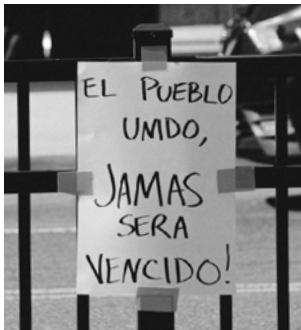 EL PUEBLO
UNIDO,
JAMAS
SERA
VENCIDO!